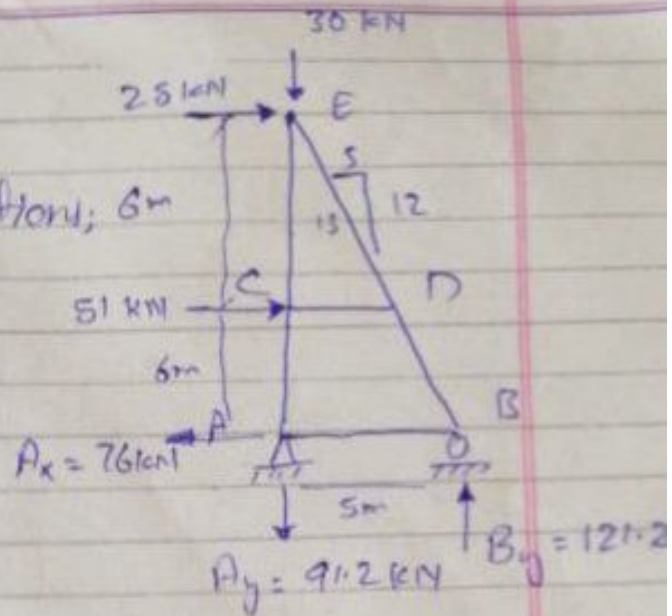 30 kN
25 kN
E
5
12
13
6m
C
D
51 kN
6m
A
B
Ax = 76kN
5m
By = 121.2
Ay = 91.2 kN